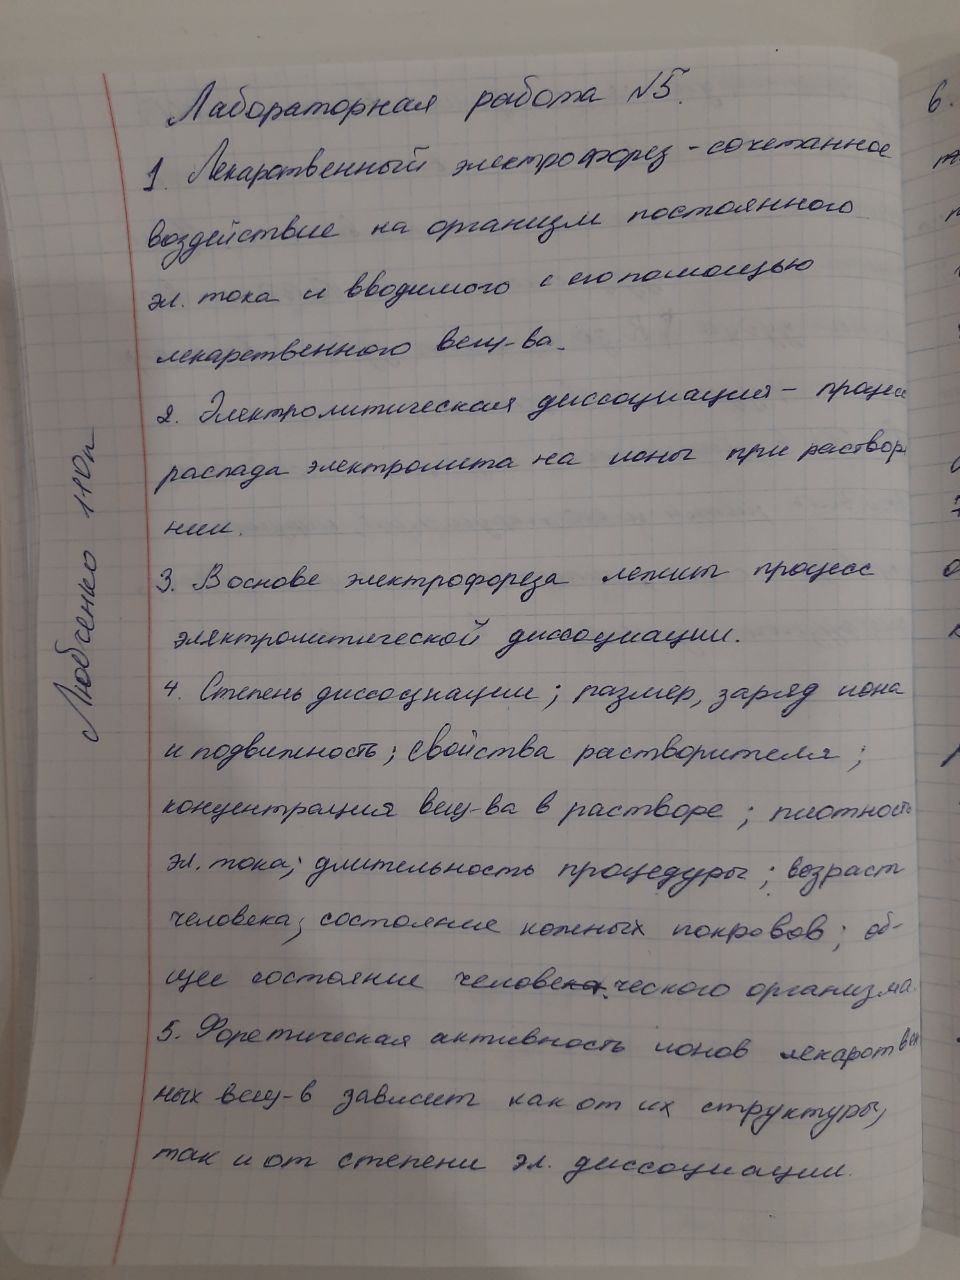 Лабораторная работа №5.
1. Лекарственный электрофорез - сочетанное
воздействие на организм постоянного
эл. тока и вводимого с его помощью
лекарственного вещ-ва.
2. Электролитическая диссоциация - процесс
распада электролита на ионы при раствор
нии.
3. В основе электрофореза лежит процесс
электролитической диссоциации.
4. Степень диссоциации; размер, заряд иона
и подвижность; свойства растворителя;
концентрация вещ-ва в растворе; плотность
эл. тока; длительность процедуры; возраст
человека; состояние кожных покровов; об-
щее состояние человеческого организма.
5. Форетическая активность ионов лекаротвен
ных вещ-в зависит как от их структуры,
так и от степени эл. диссоциации.
Любченко 110п
6.